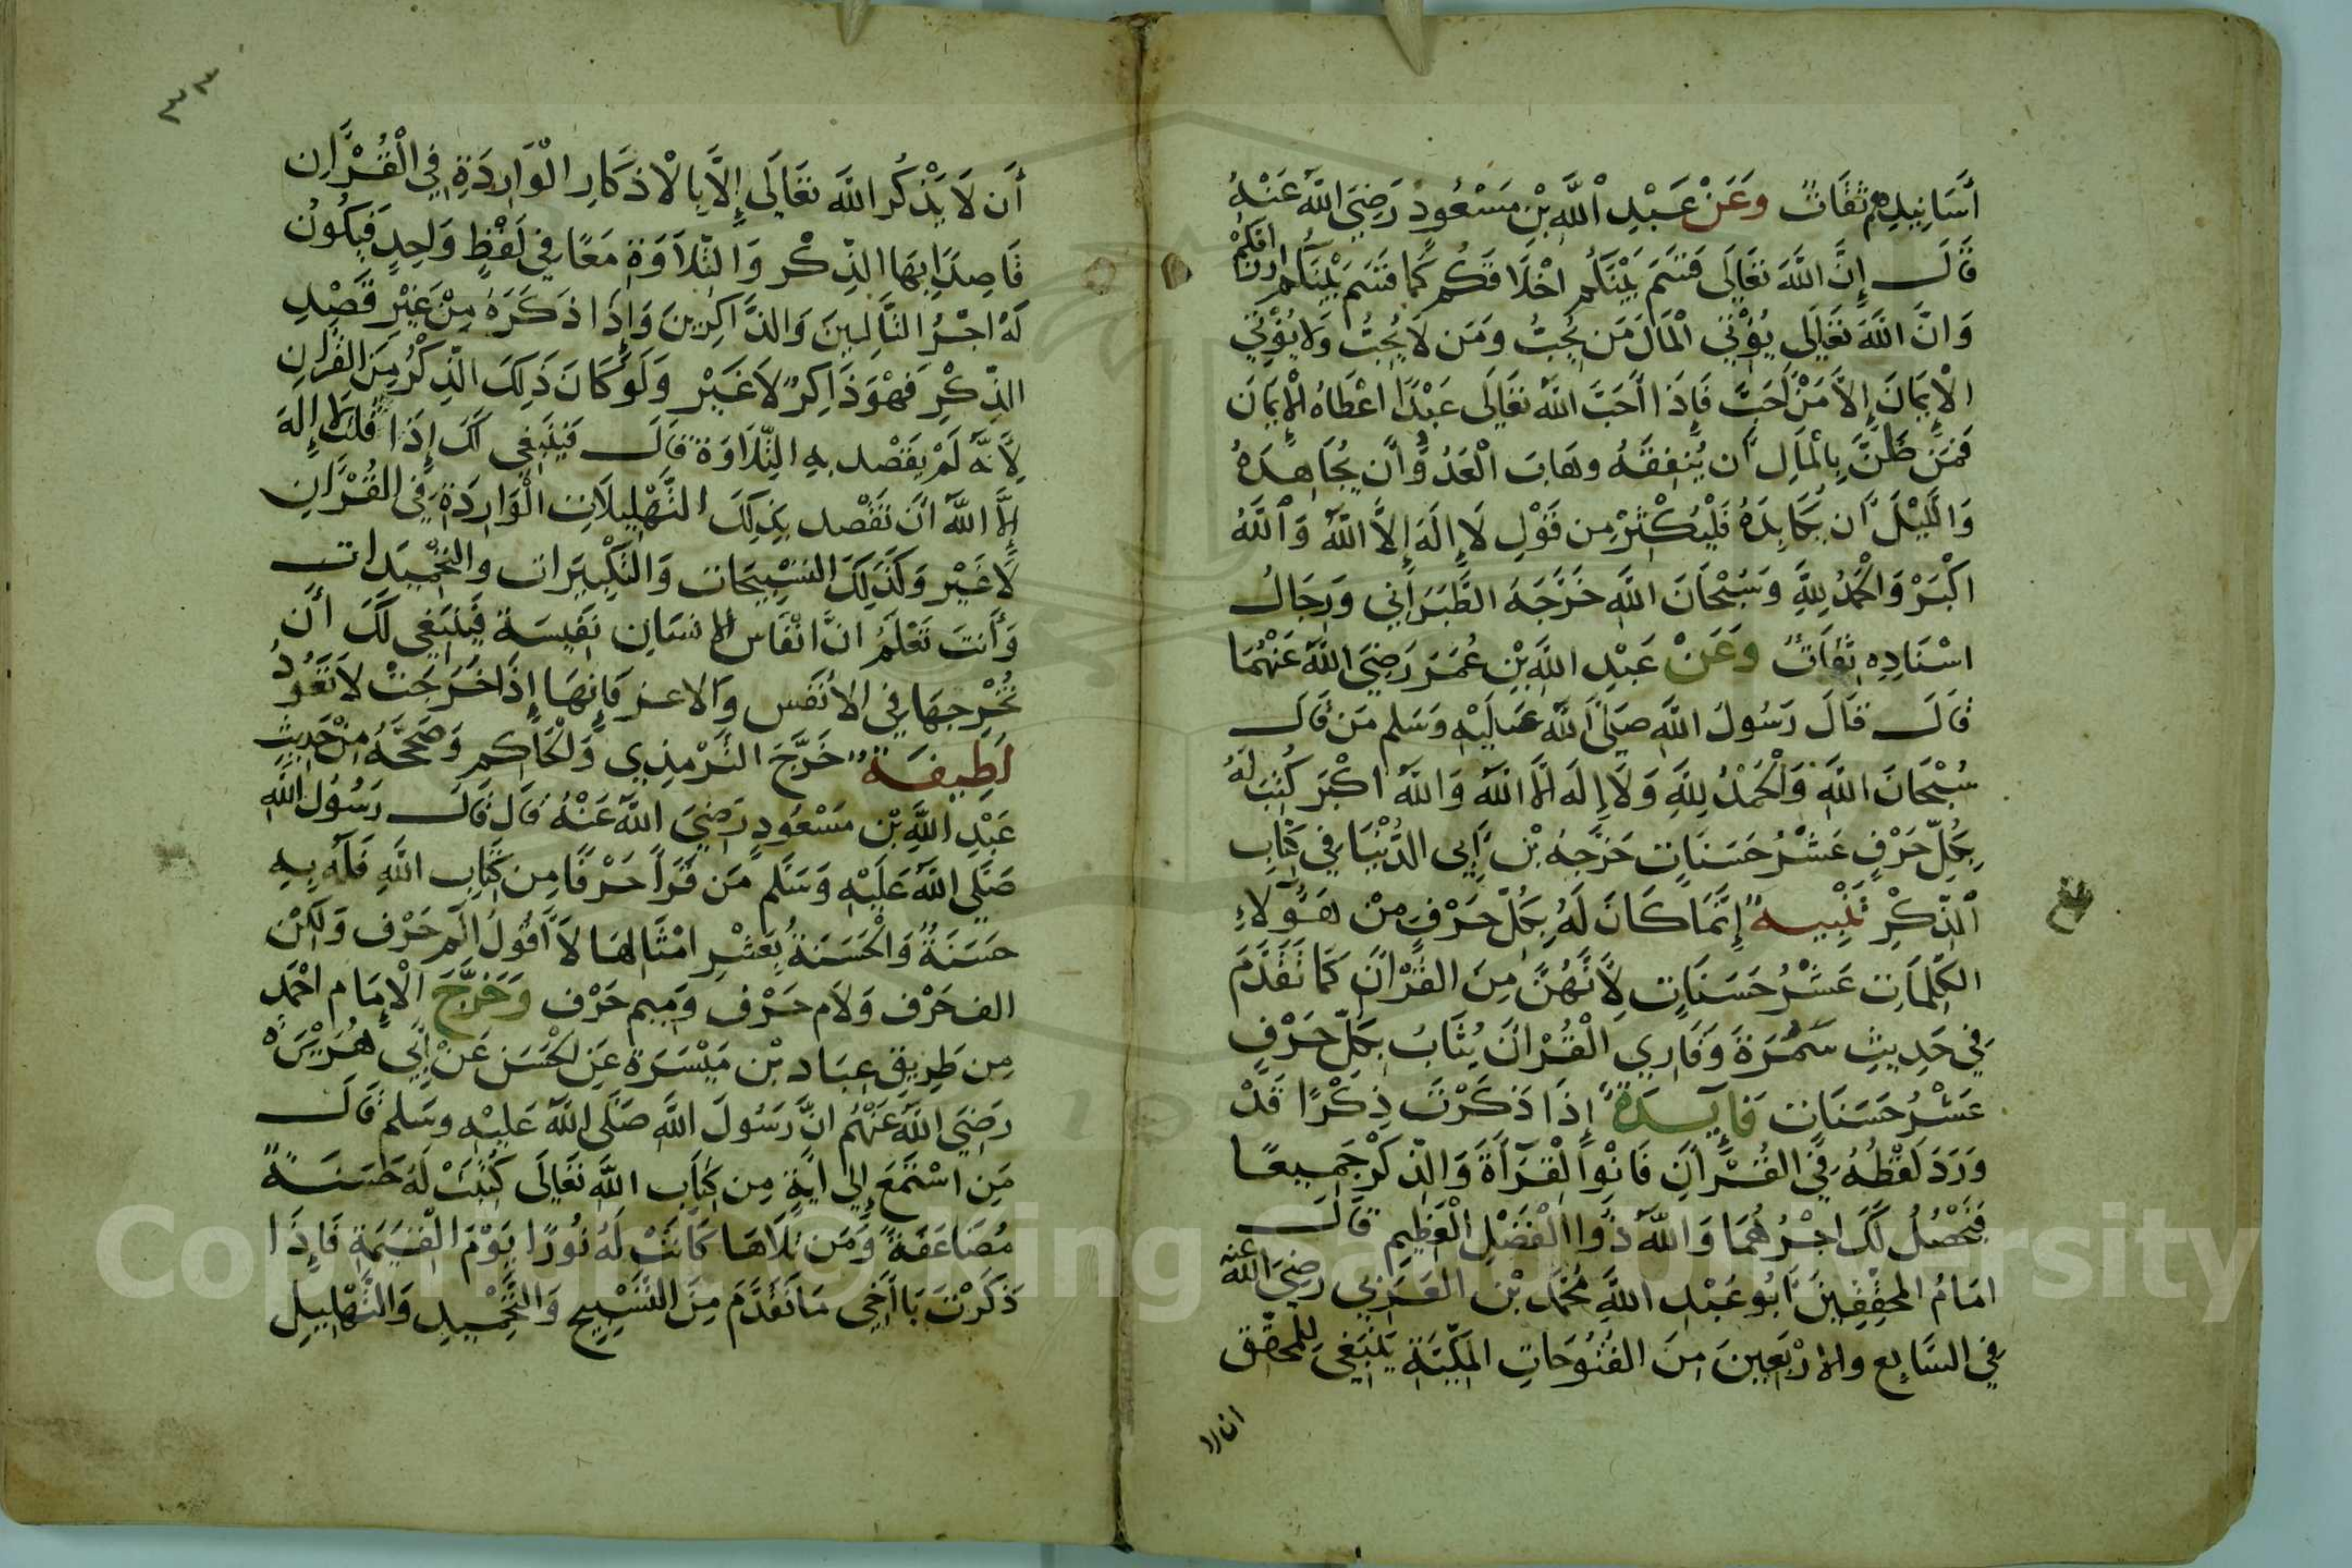 أَسَانِيدِهِم ثقَاتٌ وعَنْ عَبْدِ اللَّهِ بْنِ مَسْعُودٍ رَضِيَ اللَّهُ عَنْهُ
قَالَ إِنَّ اللَّهَ تعَالَى قَسَمَ بَيْنَكُم اخْلَاقَكُم كَمَا قَسَمَ بَيْنَكُم ارْزَاقَكُمْ
وَانَّ اللَّهَ تعَالَى يُؤْتِي الْمَالَ مَن يُحِبُّ وَمَن لَا يُحِبُّ وَلَا يُؤْتِي
الْإِيمَانَ إِلَّا مَنْ أَحَبَّ فَإِذَا أَحَبَّ اللَّهُ تعَالَى عَبْدًا اعْطَاهُ الْإِيمَانَ
فَمَن ظَنَّ بِالْمَالِ أَن يُنفِقَهُ وهَابَ الْعَدُوَّ أَن يُجَاهِدَهُ
وَاللَّيْلَ أَن يُكَابِدَهُ فَلْيُكْثِرْ مِن قَوْلِ لَا إِلَهَ إِلَّا اللَّهُ وَاللَّهُ
اكْبَرْ وَالْحَمْدُ لِلَّهِ وَسُبْحَانَ اللَّهِ خَرَّجَهُ الطَّبَرَانِي وَرِجَالُ
اسْنَادِهِ ثِقَاتٌ وَعَنْ عَبْدِ اللَّهِ بْنِ عُمَرَ رَضِيَ اللَّهُ عَنْهُمَا
قَالَ قَالَ رَسُولُ اللَّهِ صَلَّى اللَّهُ عَلَيْهِ وَسَلم مَن قَالَ
سُبْحَانَ اللَّهِ وَالْحَمْدُ لِلَّهِ وَلَا إِلَهَ الَّا اللَّهُ وَاللَّهُ اكْبَر كُتِبَ لَهُ
بِكُلِّ حَرْفٍ عَشْرُ حَسَنَاتٍ خَرَّجَهُ بْن أَبِي الدُّنْيَا فِي كِتَابِ
الذِّكْرِ تَنْبِيه إِنَّمَا كَانَ لَهُ بِكُلِّ حَرْفٍ مِنْ هَؤُلَاءِ
الكَلِمَاتِ عَشْرُ حَسَنَاتٍ لِأَنَّهُنَّ مِنَ القُرْآنِ كَمَا تَقَدَّمَ
فِي حَدِيثِ سَمُرَةَ وَقَارِي الْقُرْانَ يُثَابُ بِكُلِّ حَرْفٍ
عَشْرُ حَسَنَات فَايِدَة إِذَا ذَكَرْتَ ذِكْرًا قَدْ
وَرَدَ لَفْظُهُ فِي القُرْأَنِ فَانْوِ الْقِرَأَةَ وَالذِّكْرَ جَمِيعًا
فَيَحْصُلُ لَكَ اجْرُهُمَا وَاللَّهُ ذُوا الْفَضْلِ الْعَظِيم قَالَ
امَامُ المحَقِّقِينَ أَبُو عَبْدِ اللَّهِ مُحَمَّد بْن العَرَبِي رَضِيَ اللَّهُ عَنْهُ
فِي السَّابِعِ والارْبَعِينَ مِنَ الفُتُوحَاتِ المَكِّيَّةِ يَنْبَغِي لِلمُحَقِّق
ان لا
أَن لَا يَذْكُرَ اللَّهَ تعَالَى إِلَّا بِالْاذكَارِ الْوَارِدَةِ فِي الْقُرْأَنِ
قَاصِدًا بِهَا الذِّكْر وَالتِّلَاوَةِ مَعًا فِي لَفْظٍ وَاحِدٍ فَيَكُونُ
لَهُ اجْرُ التَّالِينَ وَالذَّاكِرِينَ وَإِذَا ذَكَرَهُ مِنْ غَيْرِ قَصْدِ
الذِّكْرِ فَهْوَ ذَاكِرٌ لَا غَيْر وَلَو كَانَ ذَلِكَ الذِّكْرُ مِنَ القُرْانِ
لِأَنَّه لَمْ يَقْصْد بِهِ التِّلَاوَةَ قَالَ فَيَنْبَغِي لَكَ إِذَا قُلْتَ لَا إِلَهَ
إِلَّا اللَّهُ انَ تَقْصْد بِذَلِكَ التَّهْلِيلَاتِ الْوَارِدَةِ فِي القُرْأَنِ
لَا غَيْر وَكَذَلِكَ التسْبِيحَات وَالتَكْبِيرَات والتحْمِيدَات
وَأَنتَ تَعْلَمُ انَّ انْفَاس الانسَانِ نَفِيسَة فَيَنْبَغِي لَكَ أَن
تُخْرِجهَا فِي الأَنْفَس وَالاعز فَإِنهَا إِذَا خَرَجَتْ لَا تَعُودُ
لَطِيفَة خَرَّجَ التِّرْمِذِي وَالْحَاكِم وَصَحَّحَهُ مِنْ حَدِيثِ
عَبْدِ اللَّهِ بْن مَسْعُودٍ رَضِيَ اللَّهُ عَنْهُ قَالَ قَالَ رَسُولُ اللَّهِ
صَلَّى اللَّهُ عَلَيْهِ وَسَلَّم مَن قَرَأَ حَرْفًا مِن كِتَابِ اللَّهِ فَلَهُ بِهِ
حَسَنَةٌ وَالْحَسَنَةُ بِعَشْرِ امْثَالِهَا لَا أَقُولُ الم حَرْف وَلَكِنْ
الف حَرْف وَلَام حَرْف وَمِيم حَرْف وَخَرَّجَ الْإِمَام احْمَد
مِن طَرِيقِ عِبَاد بْن مَيْسَرَة عَنِ الْحَسَن عَنْ أَبِي هُرَيْرَةَ
رَضِيَ اللَّهُ عَنْهُم انَّ رَسُولَ اللَّهِ صَلَّى اللَّهُ عَلَيْهِ وسَلم قَالَ
مَنِ اسْتَمَعَ إِلَى ايَةٍ مِن كِتَابِ اللَّهِ تَعَالَى كُتِبَتْ لَهُ حَسَنَةً
مُضَاعَفَةً وَمَن تَلَاهَا كَانَتْ لَهُ نُورًا يَوْمَ القِيَمَةِ فَإِذَا
ذَكَرْتَ يَا أَخِي مَا تَقَدَّمَ مِنَ التَّسْبِيحِ وَالتَّحْمِيدِ وَالتَّهْلِيلِ
Copyright © King Saud University